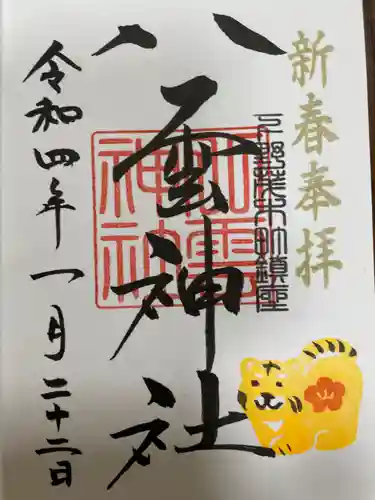 新春奉拝
足利市助戸鎮座
八雲神社
八雲
神社
令和四年一月二十二日